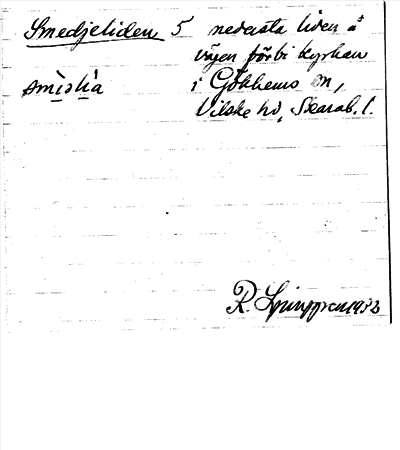 Smedjeliden 5 nedersta liden å
vägen förbi kyrkan
smìslìa i Gökhems sn,
Vilske hd, Skarab. l.
R. Ljunggren 1932